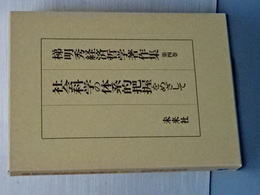 梯明秀経済哲学著作集 第四巻
社会科学の体系的把握をめざして
未来社